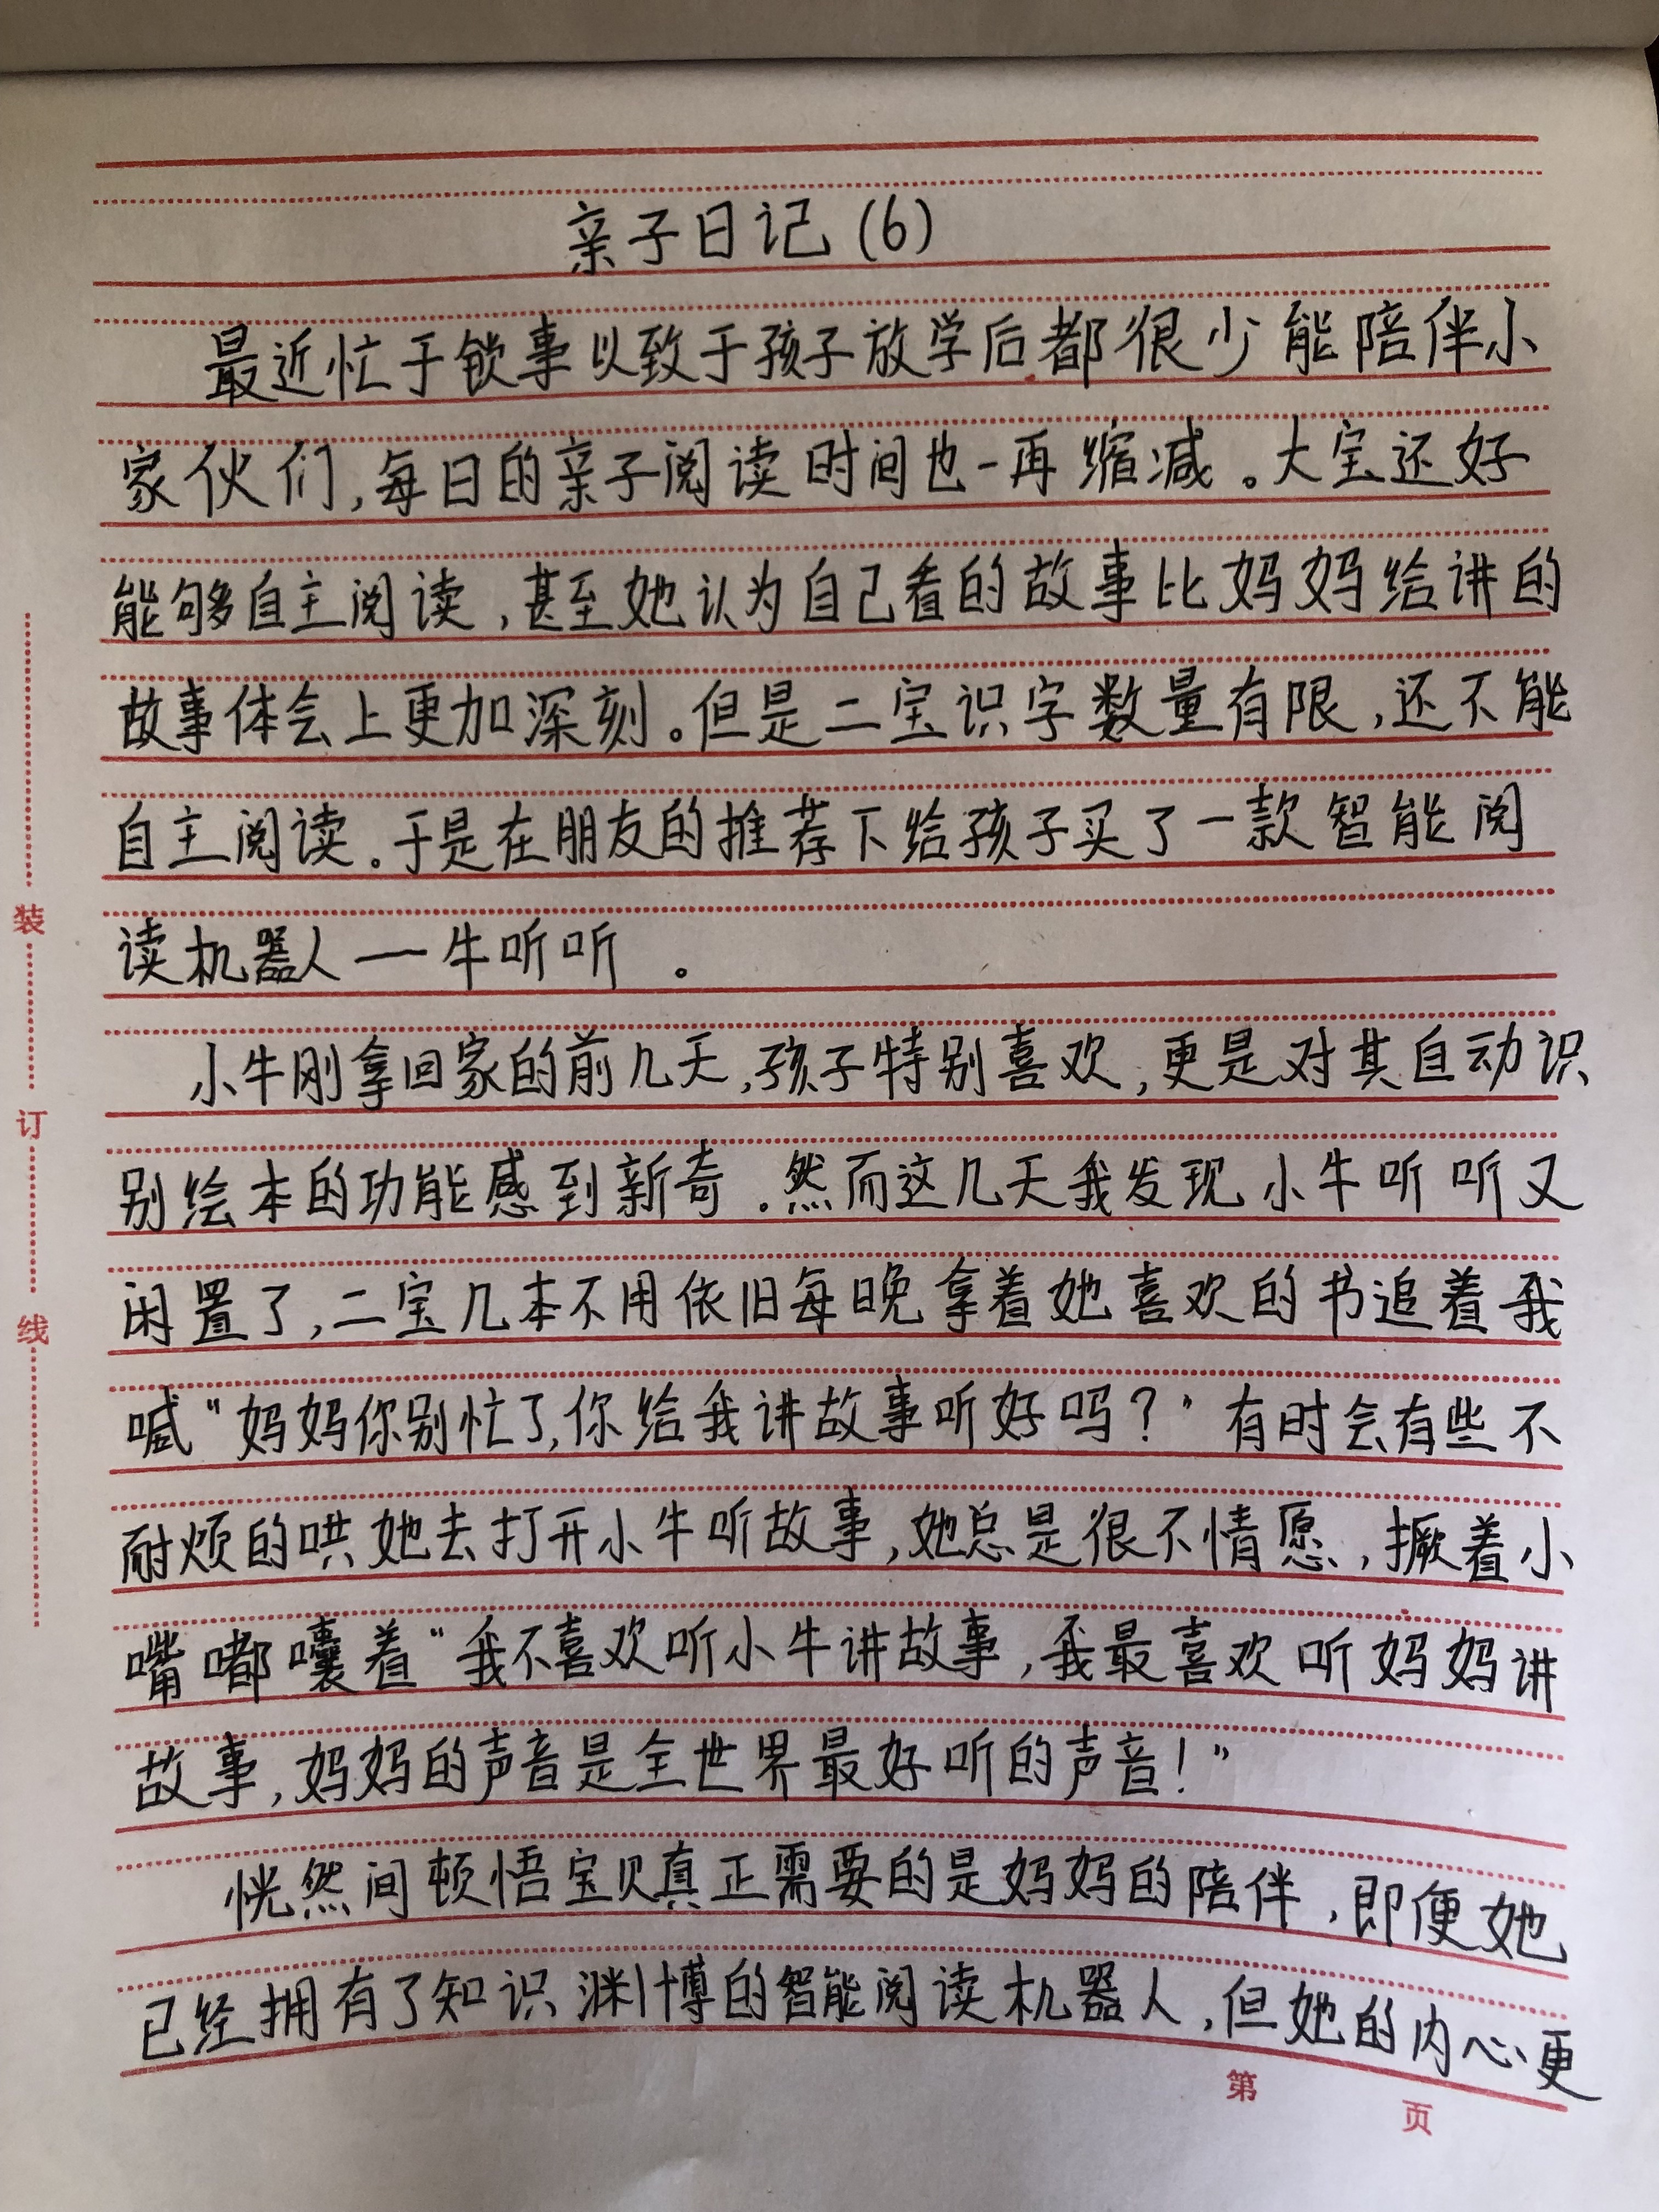 亲子日记(6)
最近忙于锁事以致于孩子放学后都很少能陪伴小
家伙们,每日的亲子阅读时间也一再缩减。大宝还好
能够自主阅读,甚至她认为自己看的故事比妈妈给讲的
故事体会上更加深刻。但是二宝识字数量有限,还不能
自主阅读。于是在朋友的推荐下给孩子买了一款智能阅
读机器人—牛听听。
小牛刚拿回家的前几天,孩子特别喜欢,更是对其自动识
别绘本的功能感到新奇。然而这几天我发现小牛听听又
闲置了,二宝几本不用依旧每晚拿着她喜欢的书追着我
喊“妈妈你别忙了,你给我讲故事听好吗?”有时会有些不
耐烦的哄她去打开小牛听故事,她总是很不情愿,撅着小
嘴嘟囔着“我不喜欢听小牛讲故事,我最喜欢听妈妈讲
故事,妈妈的声音是全世界最好听的声音!”
恍然间顿悟宝贝真正需要的是妈妈的陪伴,即便她
已经拥有了知识渊博的智能阅读机器人,但她的内心更
装
订
线
第 页